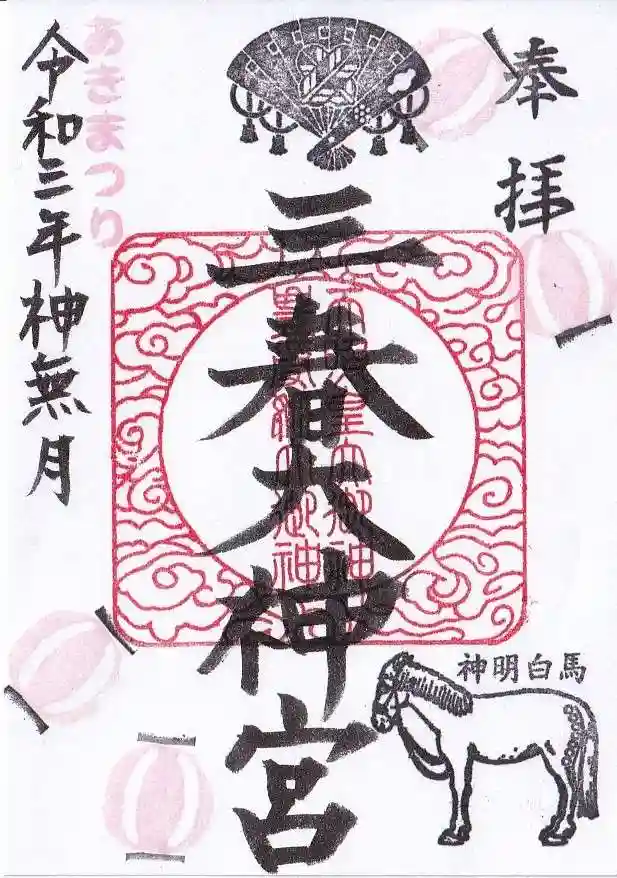 奉拝
三春大神宮
神明白馬
あきまつり
令和三年神無月